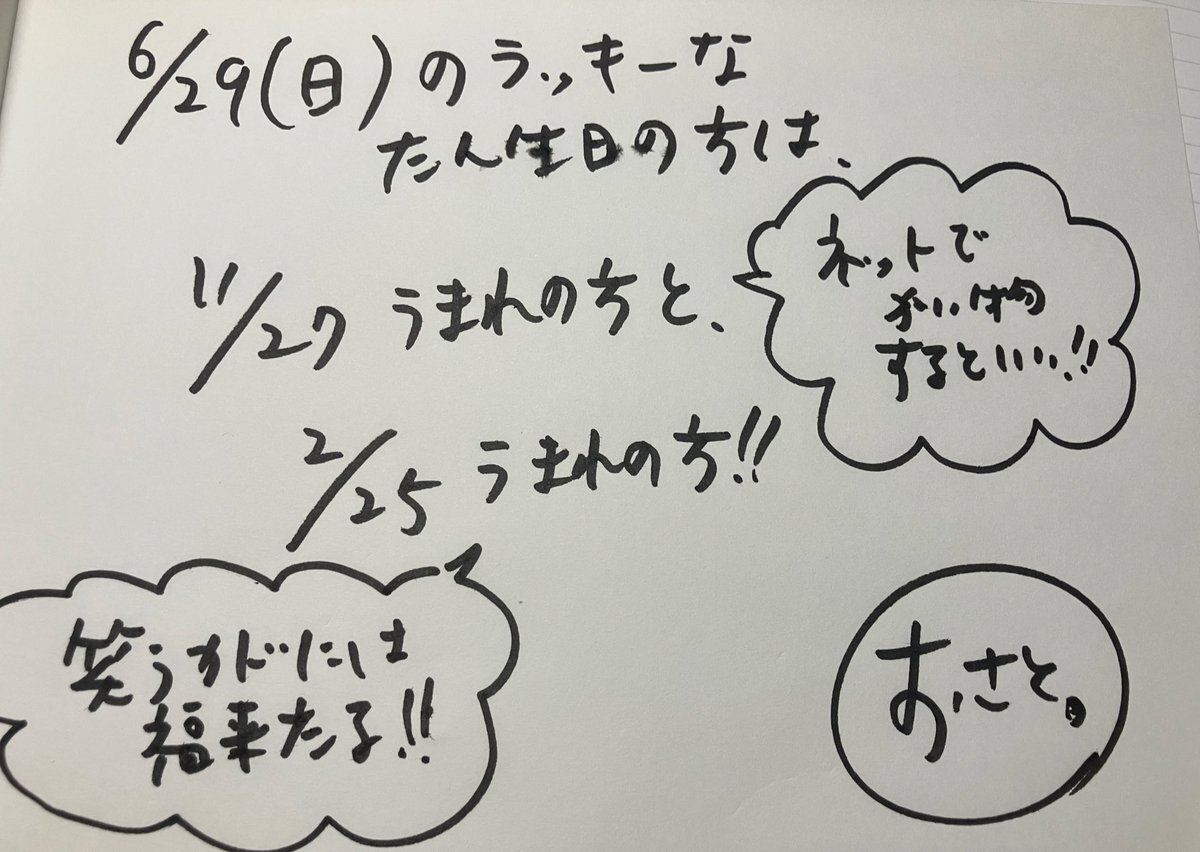 6/29(日)のラッキーな
たん生日の方は、
11/27 うまれの方と、
ネットで
かいもの
するといい!!
2/25 うまれの方!!
笑うかどには
福来たる!!
おさと。